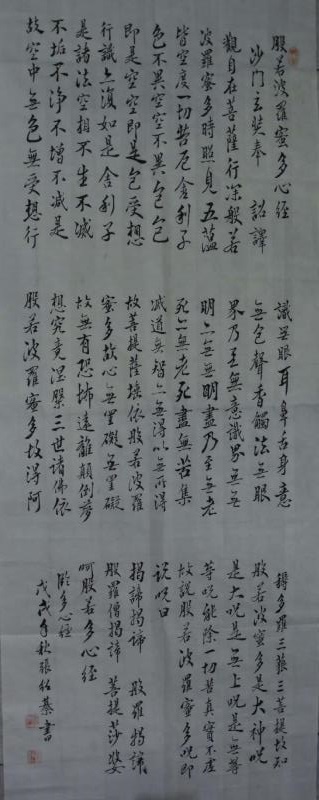 般若波羅蜜多心經
沙門玄奘奉 詔譯
觀自在菩薩行深般若
波羅蜜多時照見五蘊
皆空度一切苦厄舍利子
色不異空空不異色色
即是空空即是色受想
行識亦復如是舍利子
是諸法空相不生不滅
不垢不淨不增不減是
故空中無色無受想行
識無眼耳鼻舌身意
無色聲香觸法無眼
界乃至無意識界無無
明亦無無明盡乃至無老
死亦無老死盡無苦集
滅道無智亦無得以無所得
故菩提薩埵依般若波羅
蜜多故心無罣礙無罣礙
故無有恐怖遠離顛倒夢
想究竟涅槃三世諸佛依
般若波羅蜜多故得阿
耨多羅三藐三菩提故知
般若波蜜多是大神咒
是大咒是無上咒是無等
等咒能除一切苦真實不虛
故說般若波羅蜜多咒即
說咒曰
揭諦揭諦 般羅揭諦
般羅僧揭諦 菩提莎婆
呵般若多心經
多心經
戊戌年秋張 書